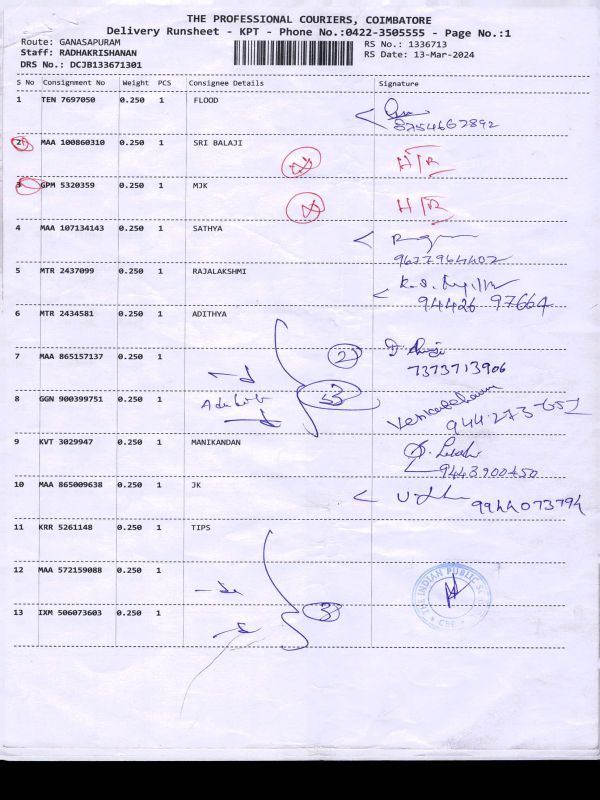 THE PROFESSIONAL COURIERS, COIMBATORE
Delivery Runsheet - KPT - Phone No.:0422-3505555 - Page No.:1
Route: GANASAPURAM RS No.: 1336713
Staff: RADHAKRISHANAN RS Date: 13-Mar-2024
DRS No.: DCJB133671301
S No Consignment No Weight PCS Consignee Details Signature
1 TEN 7697050 0.250 1 FLOOD
8754667892
2 MAA 100860310 0.250 1 SRI BALAJI
3 GPM 5320359 0.250 1 MJK
4 MAA 107134143 0.250 1 SATHYA
9677964402
5 MTR 2437099 0.250 1 RAJALAKSHMI
94426 97664
6 MTR 2434581 0.250 1 ADITHYA
7 MAA 865157137 0.250 1 2
7373713906
8 GGN 900399751 0.250 1
9 KVT 3029947 0.250 1 MANIKANDAN
9443900450
10 MAA 865009638 0.250 1 JK
9944073794
11 KRR 5261148 0.250 1 TIPS
12 MAA 572159088 0.250 1
13 IXM 506073603 0.250 1 3